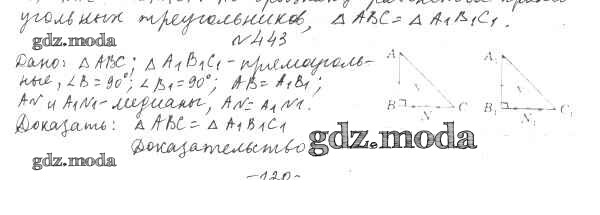 угольных треугольников, △ ABC = △ A1B1C1.
gdz.moda
№443
Дано: △ ABC; △ A1B1C1 - прямоуголь-
ные, ∠B = 90°; ∠B1 = 90°; AB = A1B1;
AN и A1N1 - медианы, AN = A1N1.
Доказать: △ ABC = △ A1B1C1
gdz.moda
Доказательство
gdz.moda
-120-
A
B
N
C
A1
B1
N1
C1